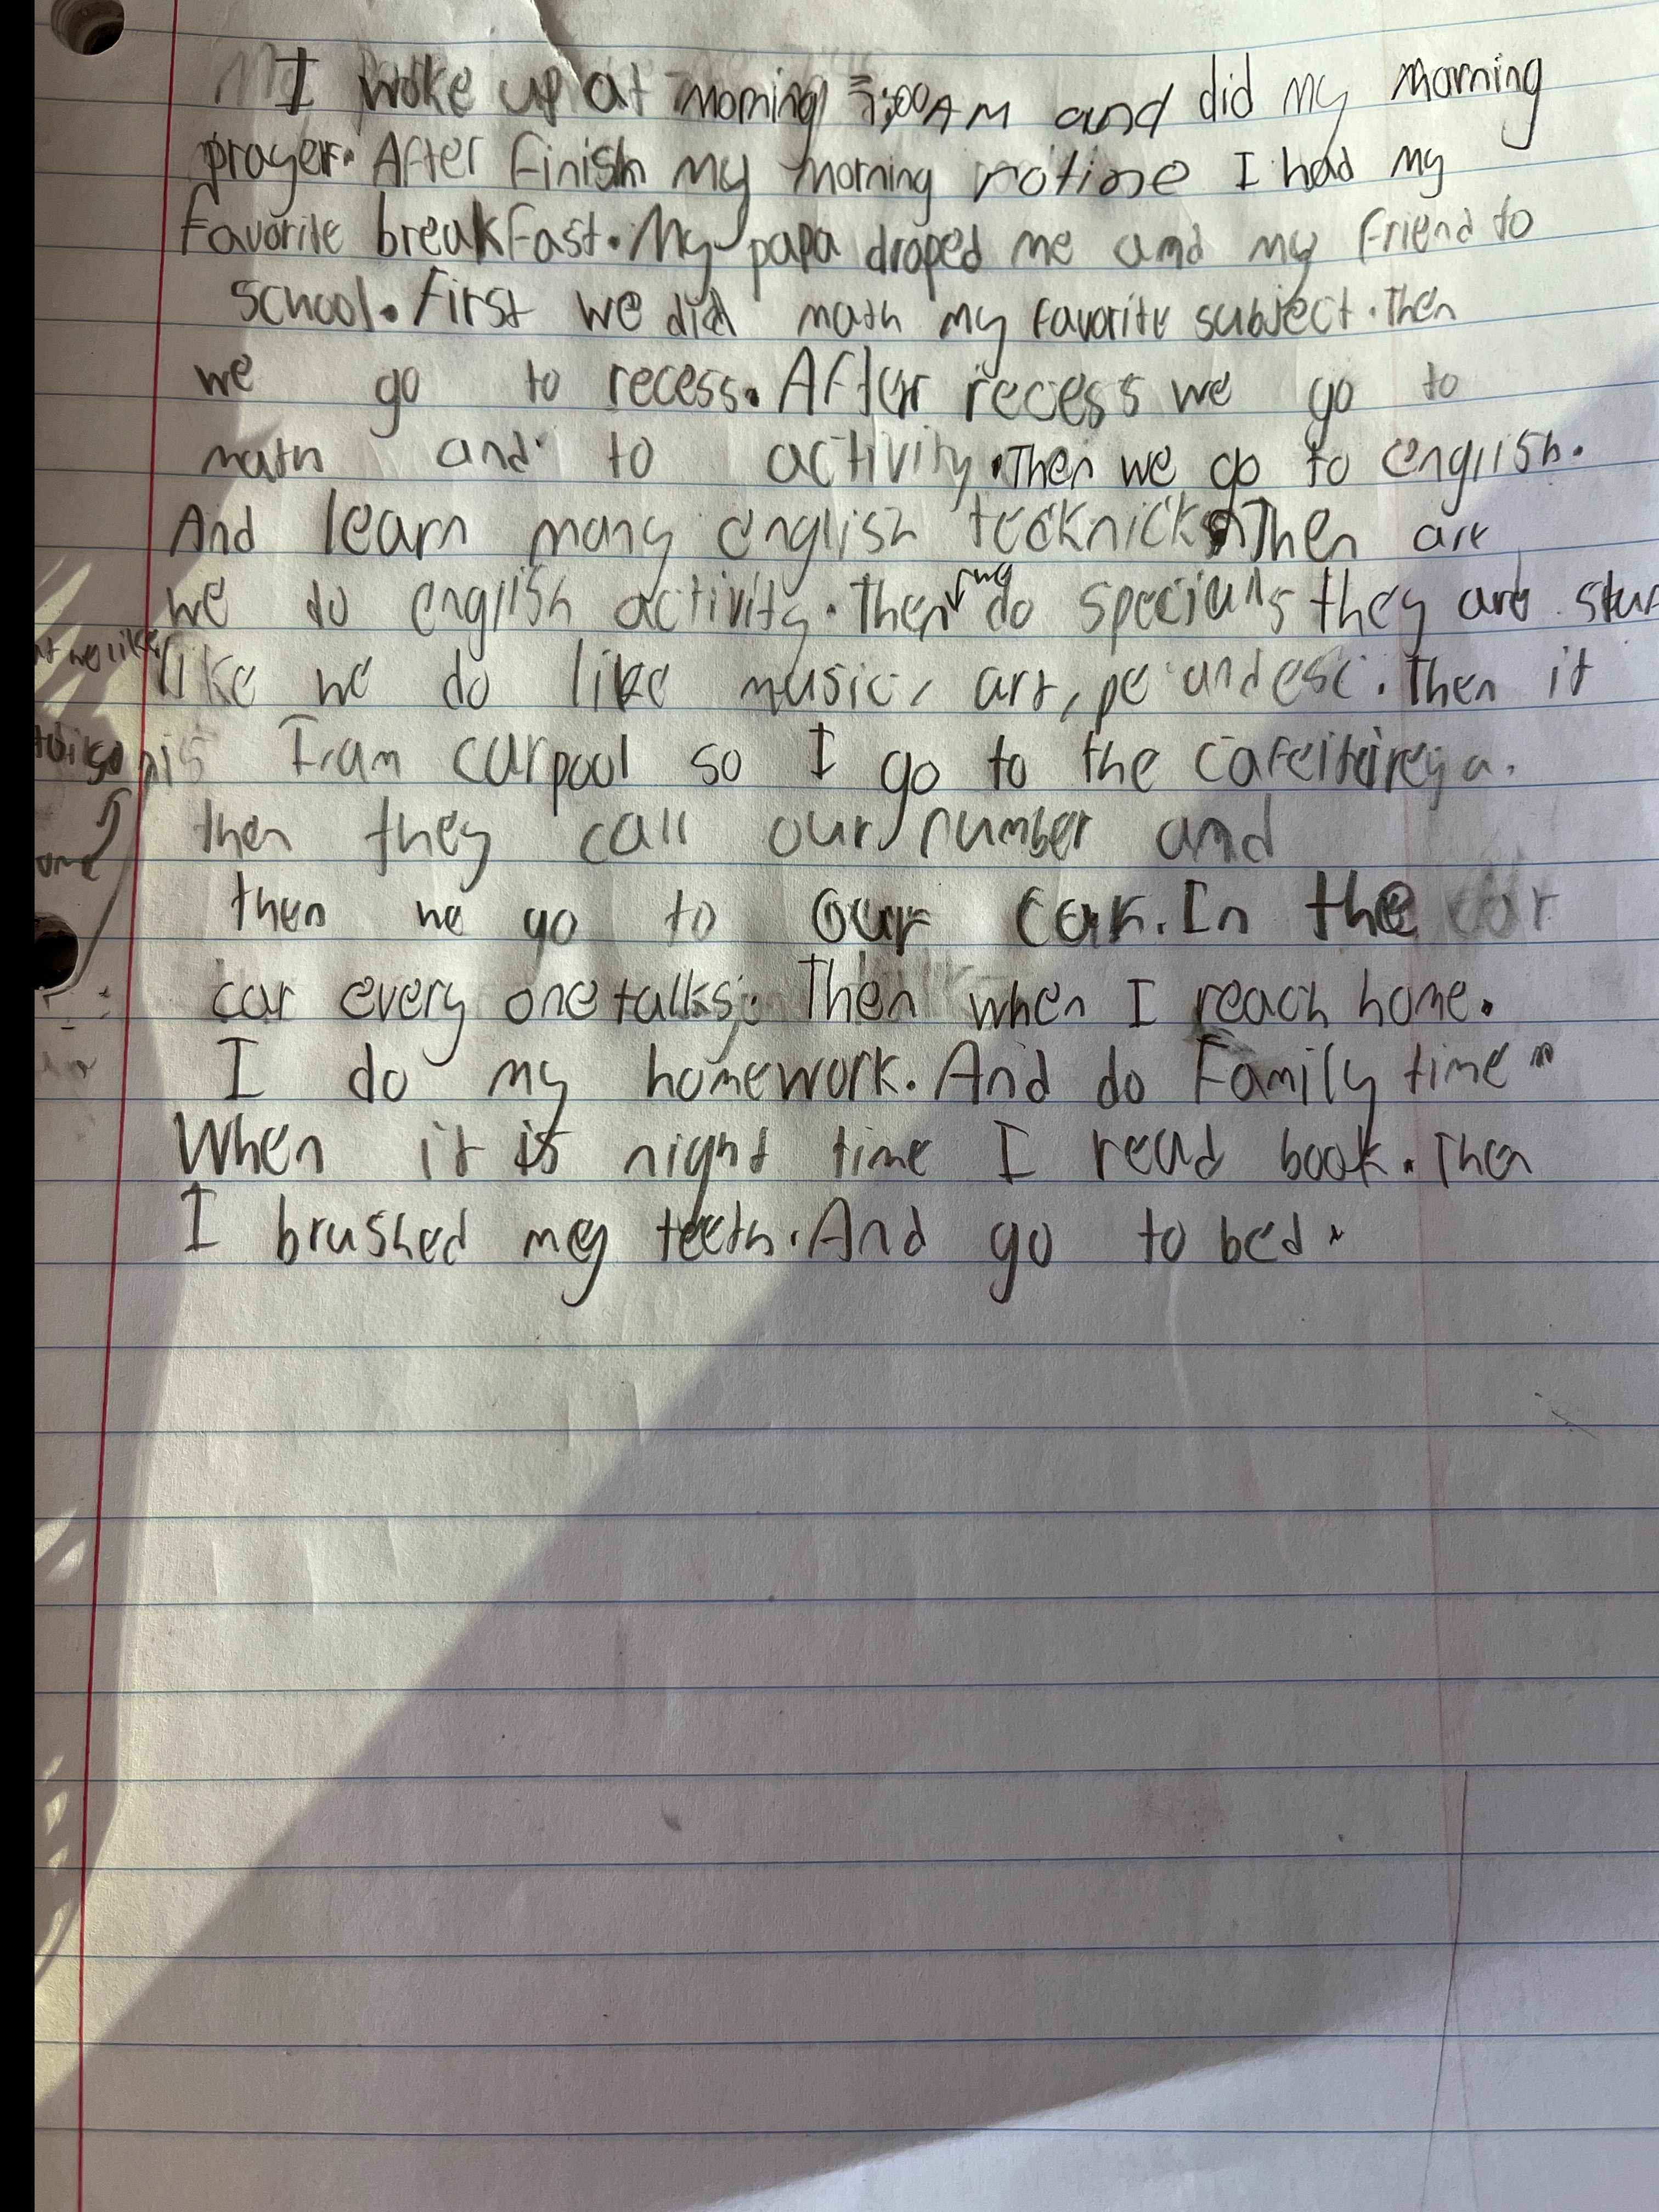 I woke up at morning 7:00AM and did my morning
prayer. After finish my morning rotine I had my
favorite breakfast. My papa droped me and my friend to
school. First we did math my favorite subject. Then
we go to recess. After recess we go to
math and to activity. Then we go to english.
And learn many english tecknicks Then are
we do english activity. Then we do specials they are
like we do like music, art, pe and esc. Then it
I am carpool so I go to the
then they call our number and
then we go to our car. In the car
car every one talks. Then when I reach home.
I do my homework. And do Family time
When it is night time I read book. Then
I brushed my teeth. And go to bed.